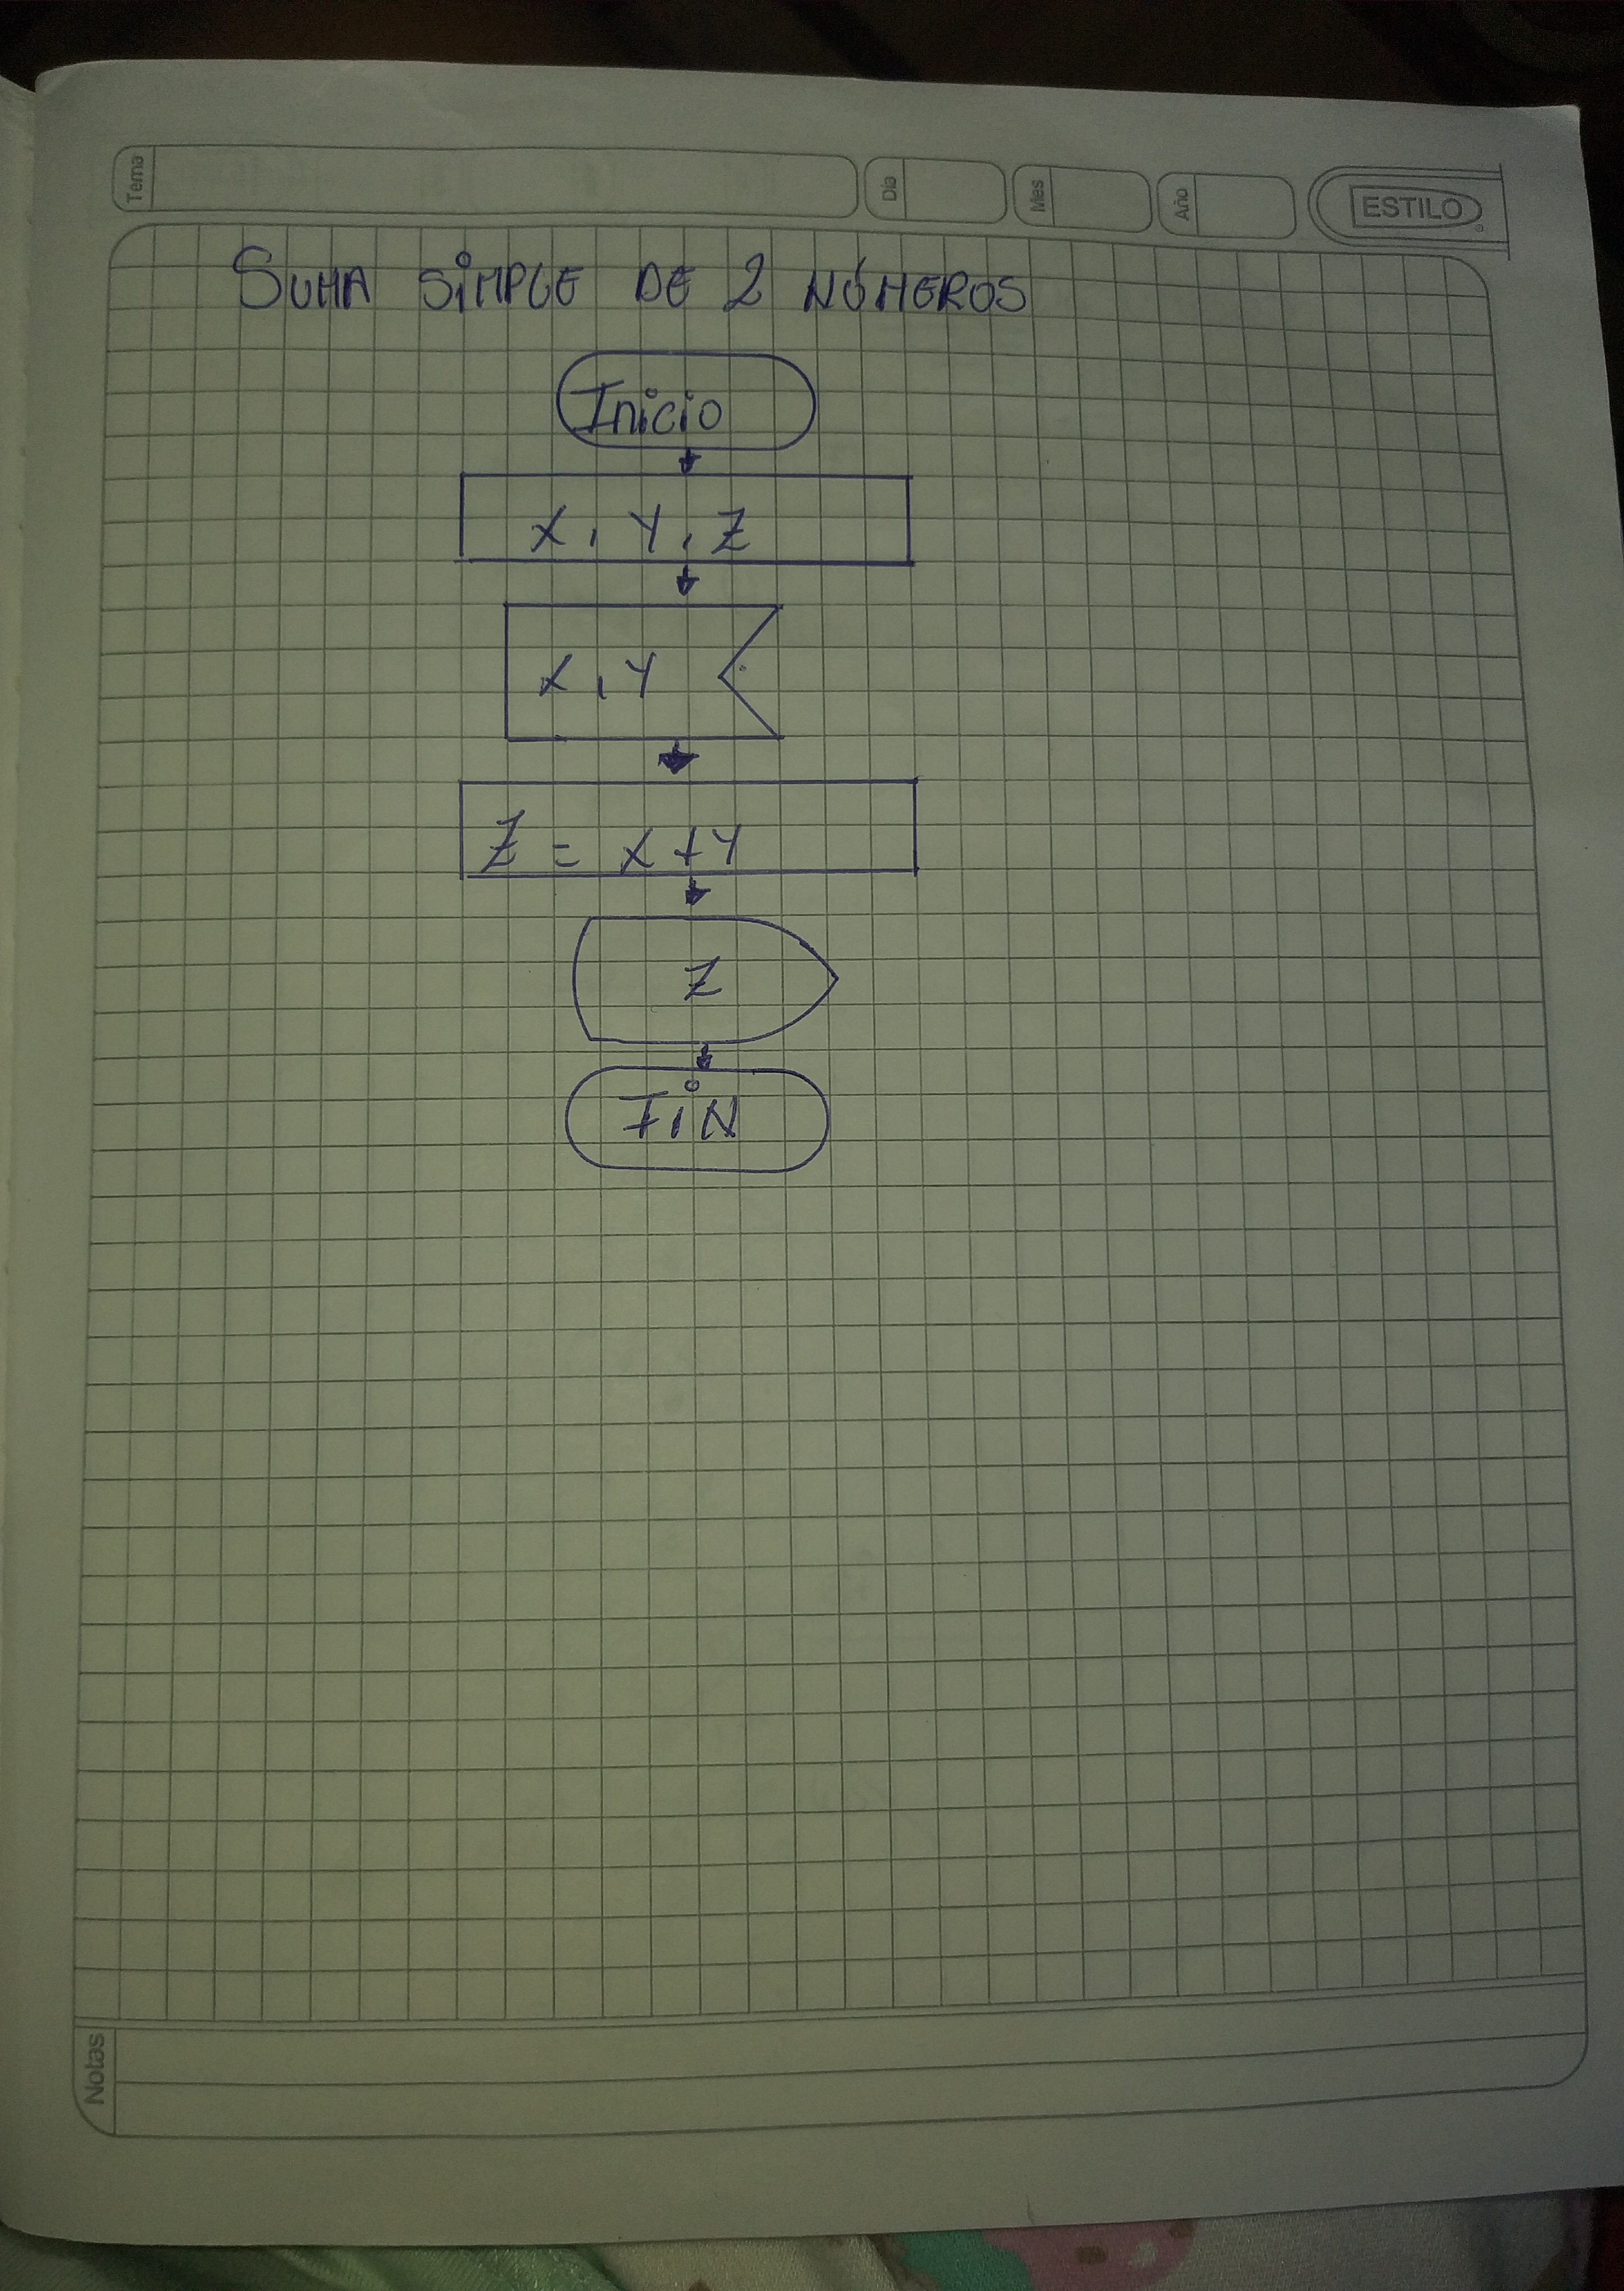 Tema
Día
Mes
Año
ESTILO
SUMA SiMPLE DE 2 NÚMEROS
Inicio
X, Y, Z
X, Y
Z = X + Y
Z
FiN
Notas